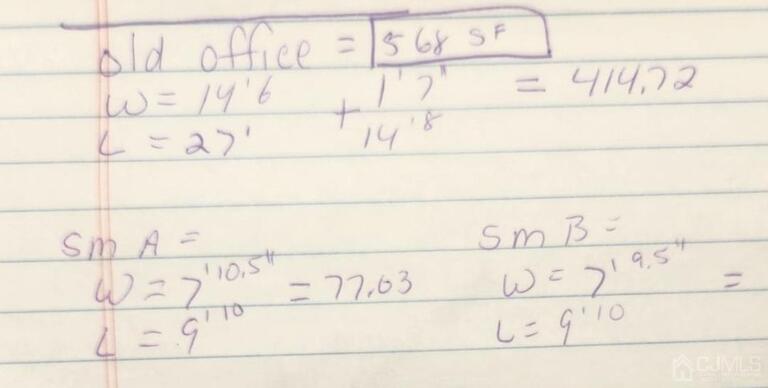 old office = 568 SF
W = 14'6 + 1'7" = 414.72
L = 27' 14'8
Sm A =
W = 7'10.5" = 77.63
L = 9'10
Sm B =
W = 7'9.5" =
L = 9'10
CJMLS